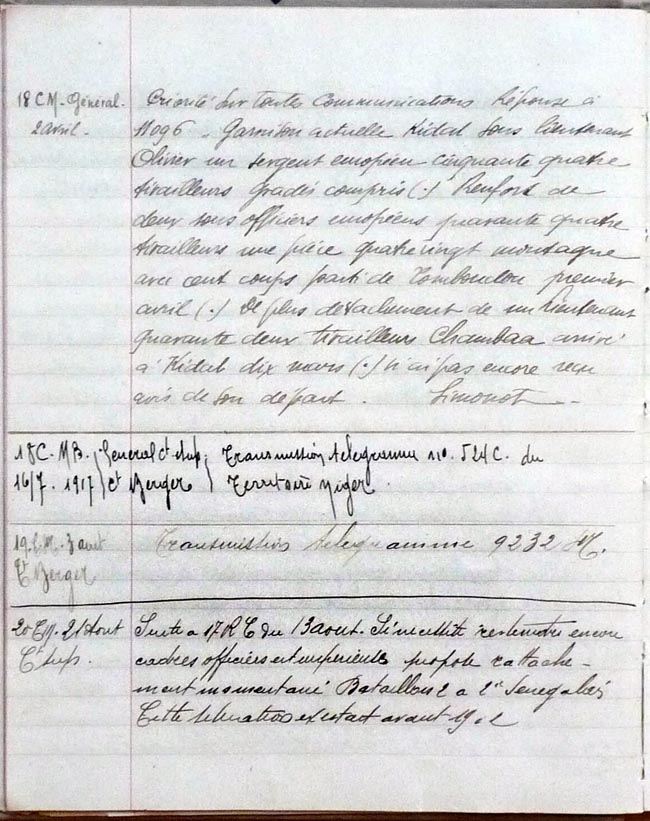 18 C M - Général -
2 avril -
Priorité sur toutes communications Réponse à
11096 - Garnison actuelle Kidal sous lieutenant
Olivier un sergent européen cinquante quatre
tirailleurs gradés compris (.) Renfort de
deux sous officiers européens quarante quatre
tirailleurs une pièce quatrevingt montagne
avec cent coups parti de Tombouctou premier
avril (.) De plus détachement de un lieutenant
quarante deux tirailleurs Chambaa arrivé
à Kidal dix mars (.) n'ai pas encore reçu
avis de son départ . Simonot -
18 C. M B. Général Ct Sup. Transmission télégramme no. 524 C. du
16/7. 1917 Ct Berger Territoire Niger .
19. C. M. 3 aout Transmission télégramme 9232 M.
Ct Berger
20 C M. 21 Aout Suite à 17 R C du 13 aout. Si nécessité restreindre encore
Ct Sup. cadres officiers propose rattache-
ment momentané Bataillon 2 à 2e Sénégalais
Cette situation existait avant